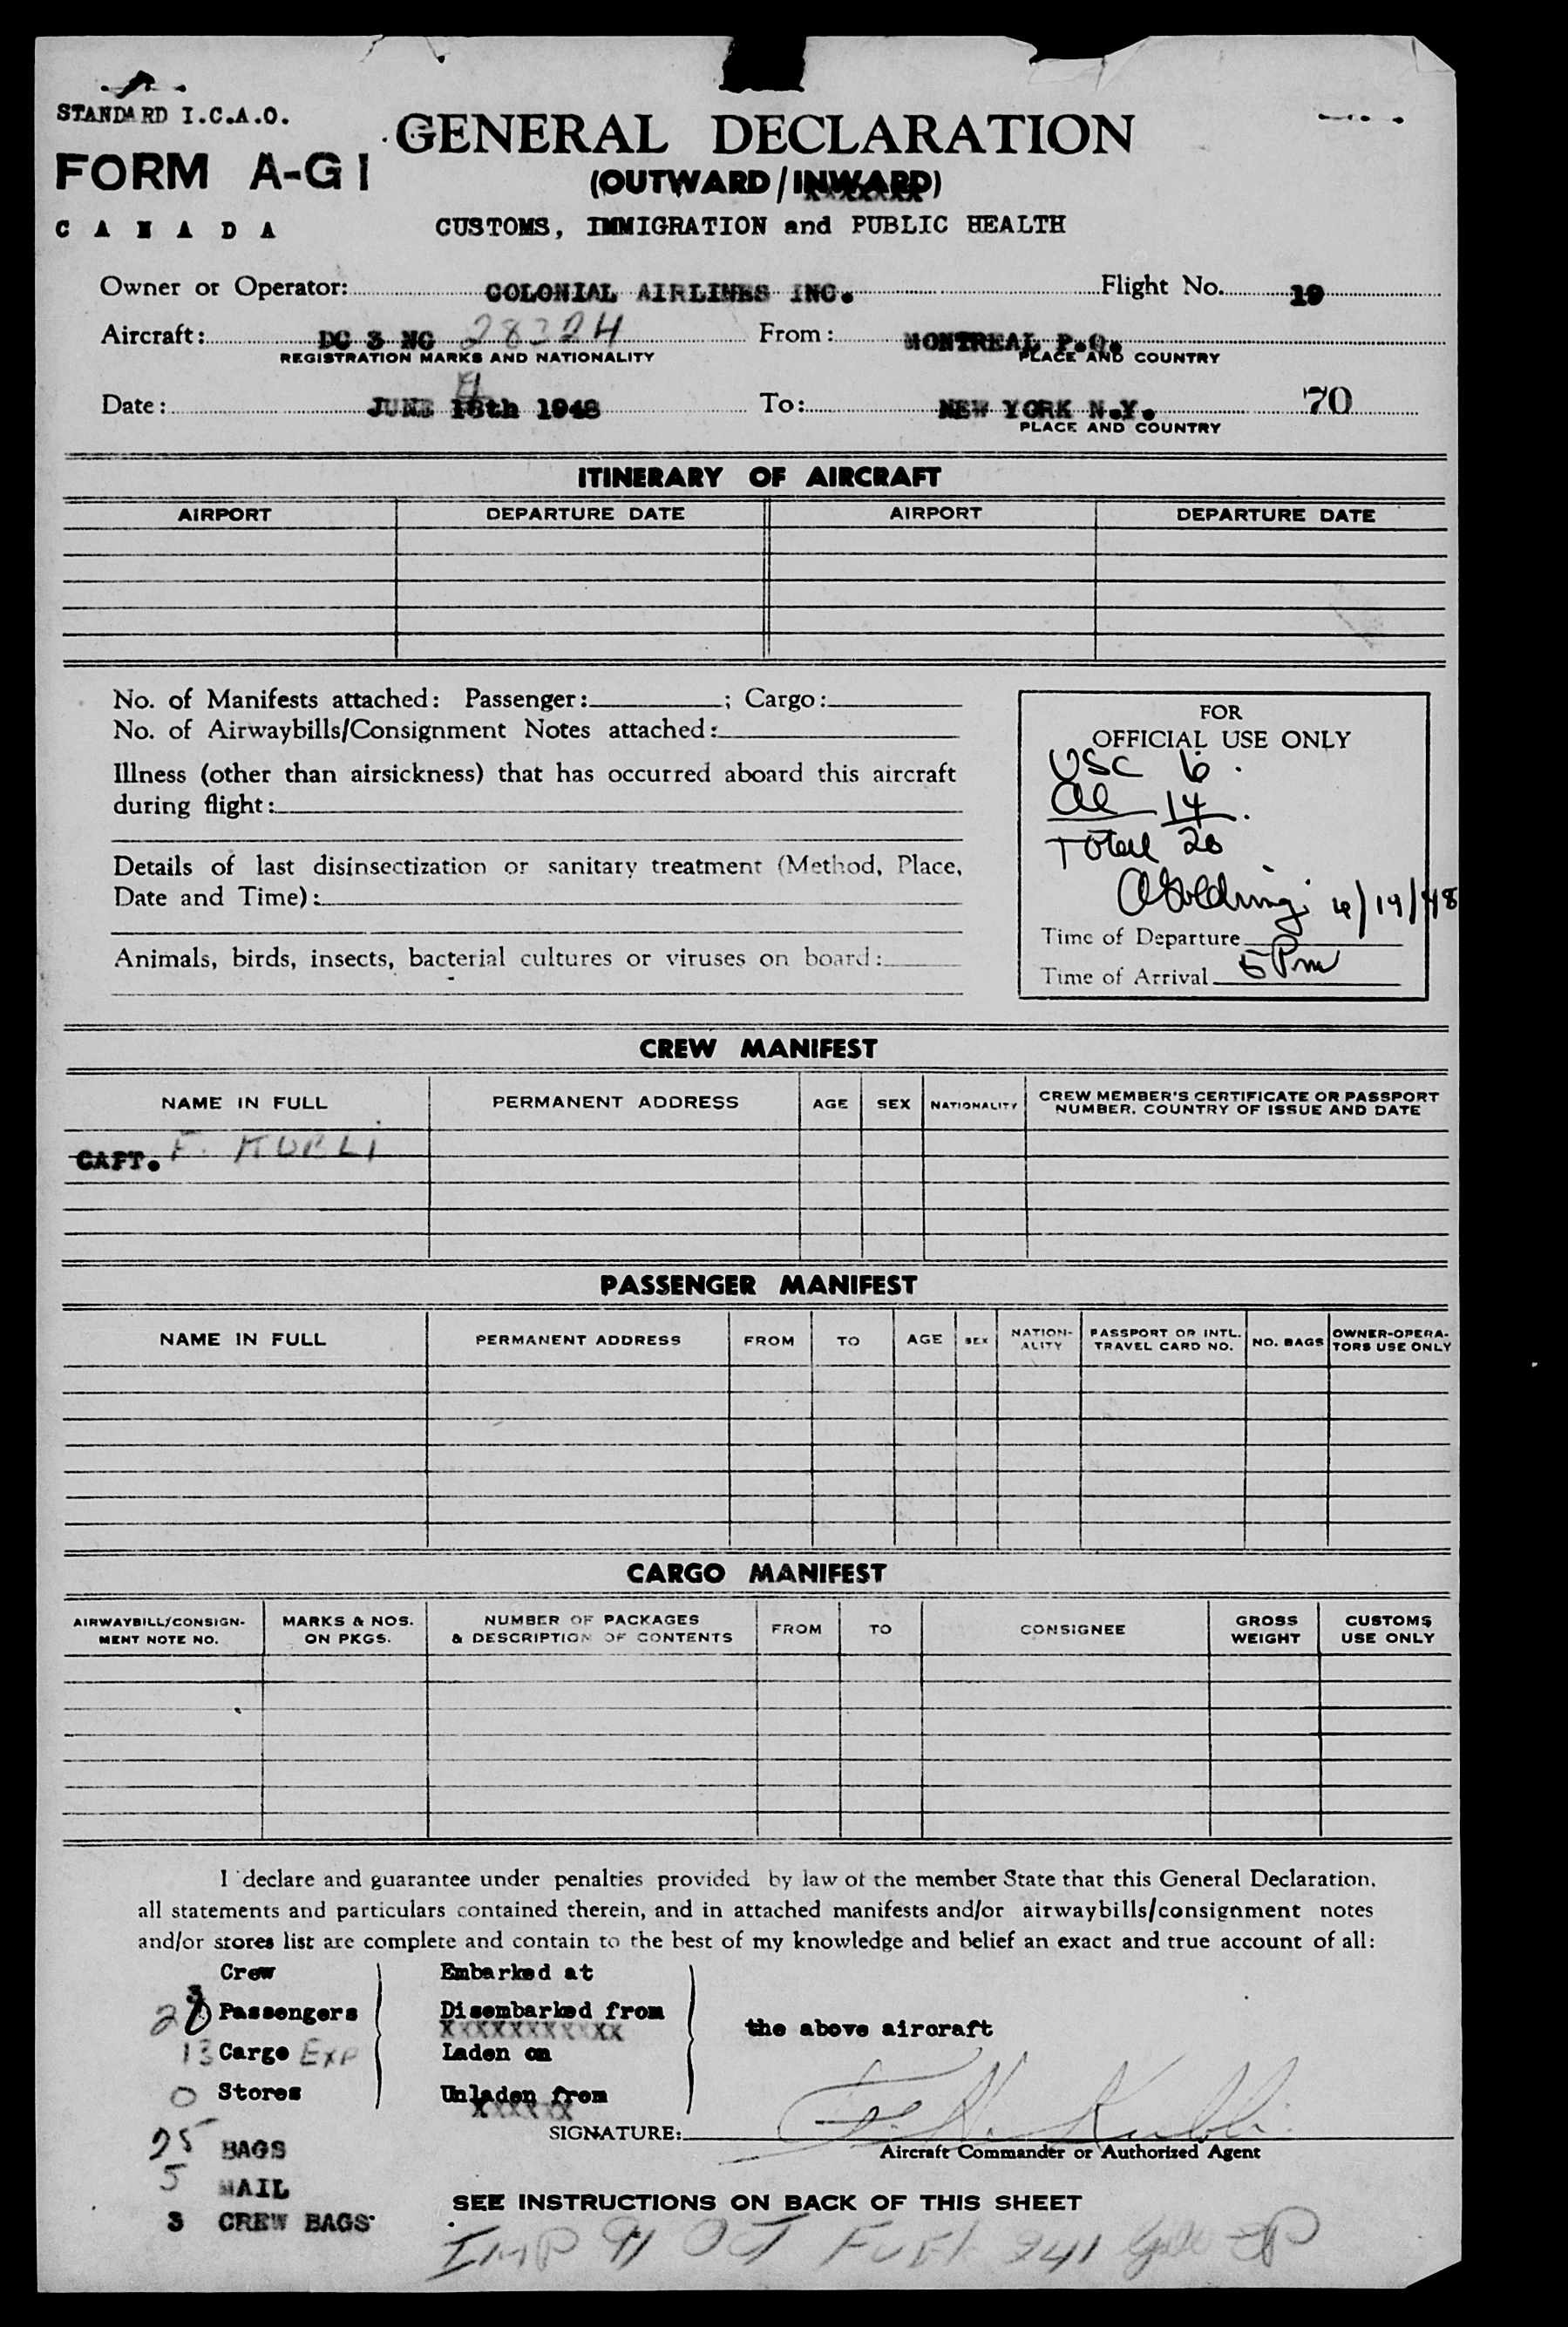 STANDARD I.C.A.O.
FORM A-G1
CANADA
GENERAL DECLARATION
(OUTWARD/INWARD)
CUSTOMS, IMMIGRATION and PUBLIC HEALTH
Owner or Operator: COLONIAL AIRLINES INC. Flight No. 19
Aircraft: DC 3 NC 28324 From: MONTREAL P.Q.
REGISTRATION MARKS AND NATIONALITY PLACE AND COUNTRY
Date: JUNE 18th 1948 To: NEW YORK N.Y. 70
PLACE AND COUNTRY
ITINERARY OF AIRCRAFT
AIRPORT DEPARTURE DATE AIRPORT DEPARTURE DATE
No. of Manifests attached: Passenger: ; Cargo:
No. of Airwaybills/Consignment Notes attached:
Illness (other than airsickness) that has occurred aboard this aircraft
during flight:
Details of last disinsectization or sanitary treatment (Method, Place,
Date and Time):
Animals, birds, insects, bacterial cultures or viruses on board:
FOR
OFFICIAL USE ONLY
USC 6.
al 14.
Total 20
6/19/48
Time of Departure
Time of Arrival 5 Pm
CREW MANIFEST
NAME IN FULL PERMANENT ADDRESS AGE SEX NATIONALITY CREW MEMBER'S CERTIFICATE OR PASSPORT
NUMBER, COUNTRY OF ISSUE AND DATE
CAPT. F. KUBLI
PASSENGER MANIFEST
NAME IN FULL PERMANENT ADDRESS FROM TO AGE SEX NATION-
ALITY PASSPORT OR INTL.
TRAVEL CARD NO. NO. BAGS OWNER-OPERA-
TORS USE ONLY
CARGO MANIFEST
AIRWAYBILL/CONSIGN-
MENT NOTE NO. MARKS & NOS.
ON PKGS. NUMBER OF PACKAGES
& DESCRIPTION OF CONTENTS FROM TO CONSIGNEE GROSS
WEIGHT CUSTOMS
USE ONLY
I declare and guarantee under penalties provided by law of the member State that this General Declaration,
all statements and particulars contained therein, and in attached manifests and/or airwaybills/consignment notes
and/or stores list are complete and contain to the best of my knowledge and belief an exact and true account of all:
3 Crew Embarked at
20 Passengers Disembarked from
XXXXXXXXXXX
the above aircraft
13 Cargo Exp Laden on
0 Stores Unladen from
XXXXXX
SIGNATURE: F. H. Kubli
Aircraft Commander or Authorized Agent
25 BAGS
5 MAIL
3 CREW BAGS
SEE INSTRUCTIONS ON BACK OF THIS SHEET
IMP 91 OCT FUEL 241 Gals